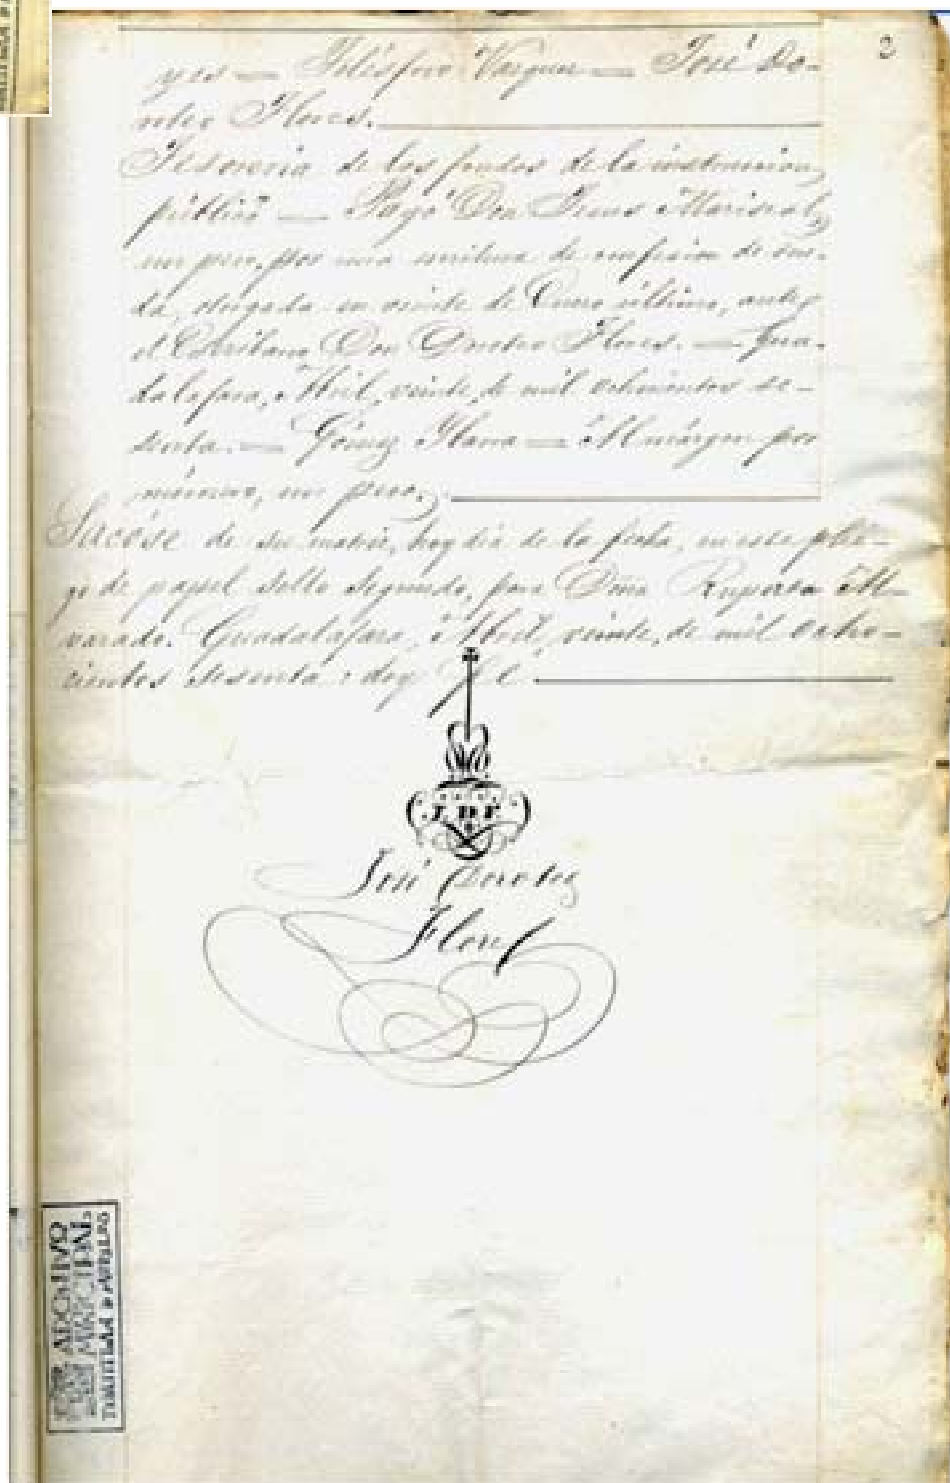 2
yes — Telésforo Vargas — José Do-
roteo Flores.
Tesoreria de los fondos de la instruccion
pública — Pagó Don Jesus Mariscal,
un peso, por una escritura de confesion de deu-
da, otorgada en veinte de Enero último, ante
el Escribano Don Doroteo Flores. — Gua-
dalajara, Abril, veinte, de mil ochocientos se-
senta. — Gómez Llana — Al márgen por
número, un peso.
Sacóse de su matriz, hoy dia de la fecha, en este plie-
go de papel sello segundo, para Doña Ruperta Al-
varado. Guadalajara, Abril, veinte, de mil ocho-
cientos sesenta: doy fé
J D F
José Doroteo
Flores
ARCHIVO
MUNICIPAL